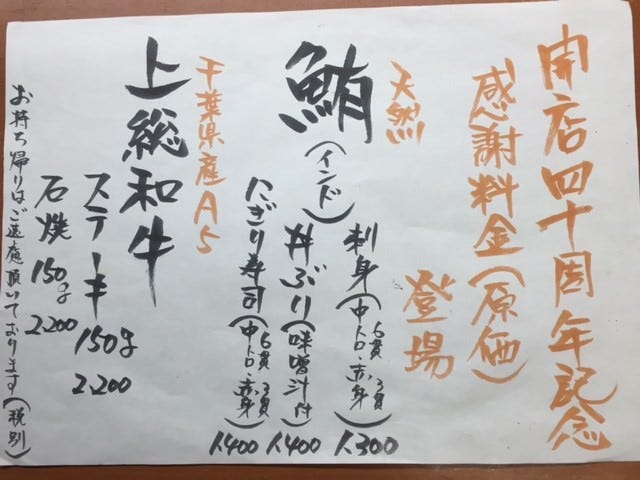 開店四十周年記念
感謝料金(原価)
登場
天然
鮪(インド)
刺身(中トロ・赤身)1.300
丼ぶり(味噌汁付)1.400
にぎり寿司(中トロ 6貫・赤身 3貫)1.400
千葉県産A5
上総和牛
ステーキ 150g 2.200
石焼 150g 2.200
お持ち帰りはご遠慮頂いております(税別)